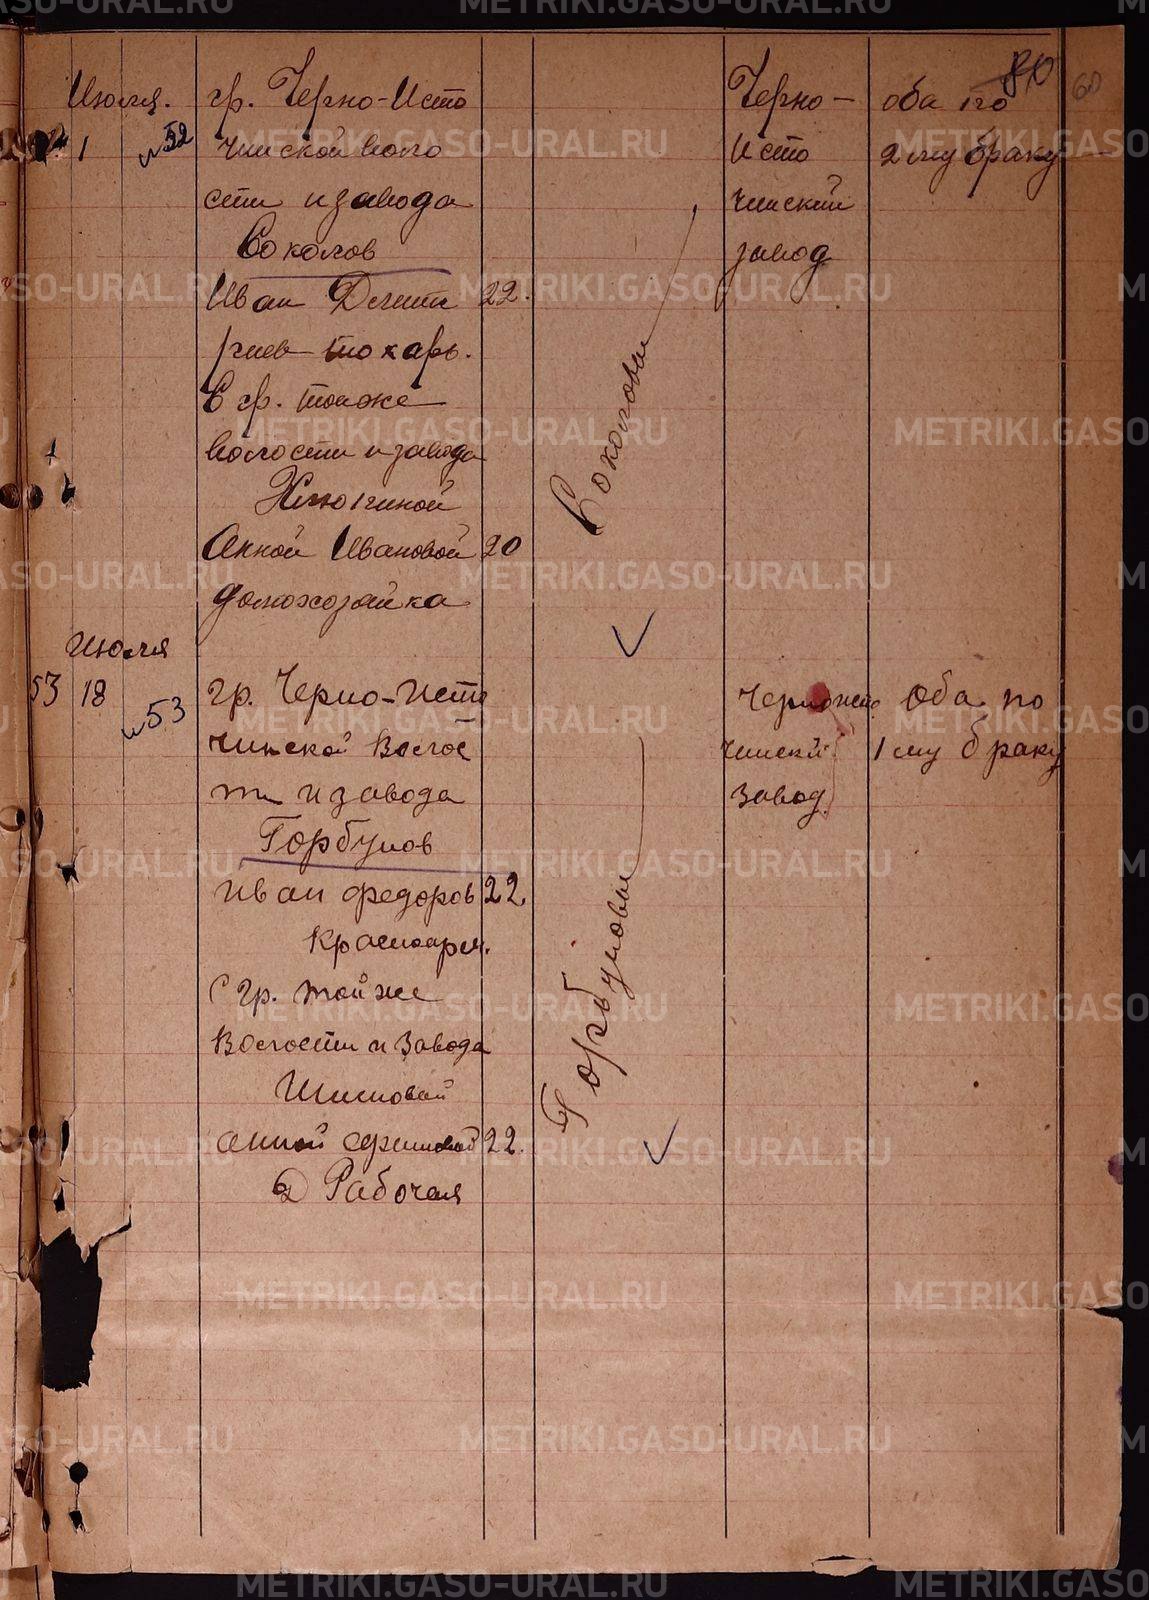 80 60
Июля.
1 52
гр. Черно-Исто
чинской воло
сти и завода
Соколов
Иван Дмит 22.
риев токарь.
С гр. тойже
волости и завода
Клюгиной
Анной Ивановой 20
домохозяйка
Соколовы
Черно-
Исто
чинский
завод
оба по
2 му браку
Июля
53 18 53
гр. Черно-Исто
чинской Волос
ти и завода
Горбунов
Иван Федоров 22.
Красноарм.
С гр. тойже
Волости и Завода
Шишовой
Анной 22.
Рабочая
Горбуновы
Черноисто
чинский
завод
Оба по
1 му браку
METRIKI.GASO-URAL.RU